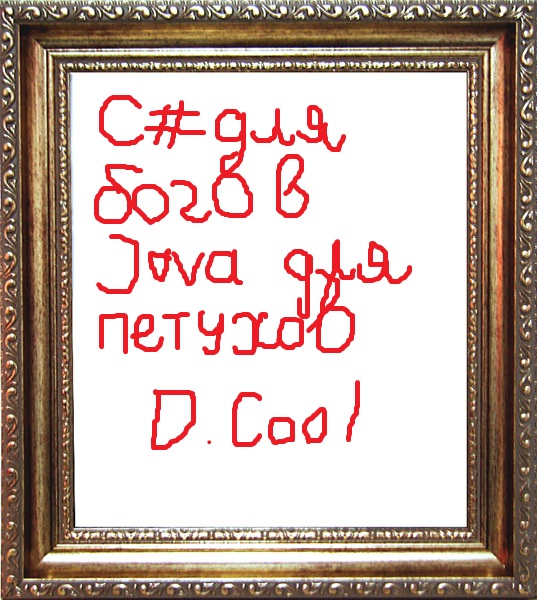 C# для
богов
Java для
петухов
D. Cool